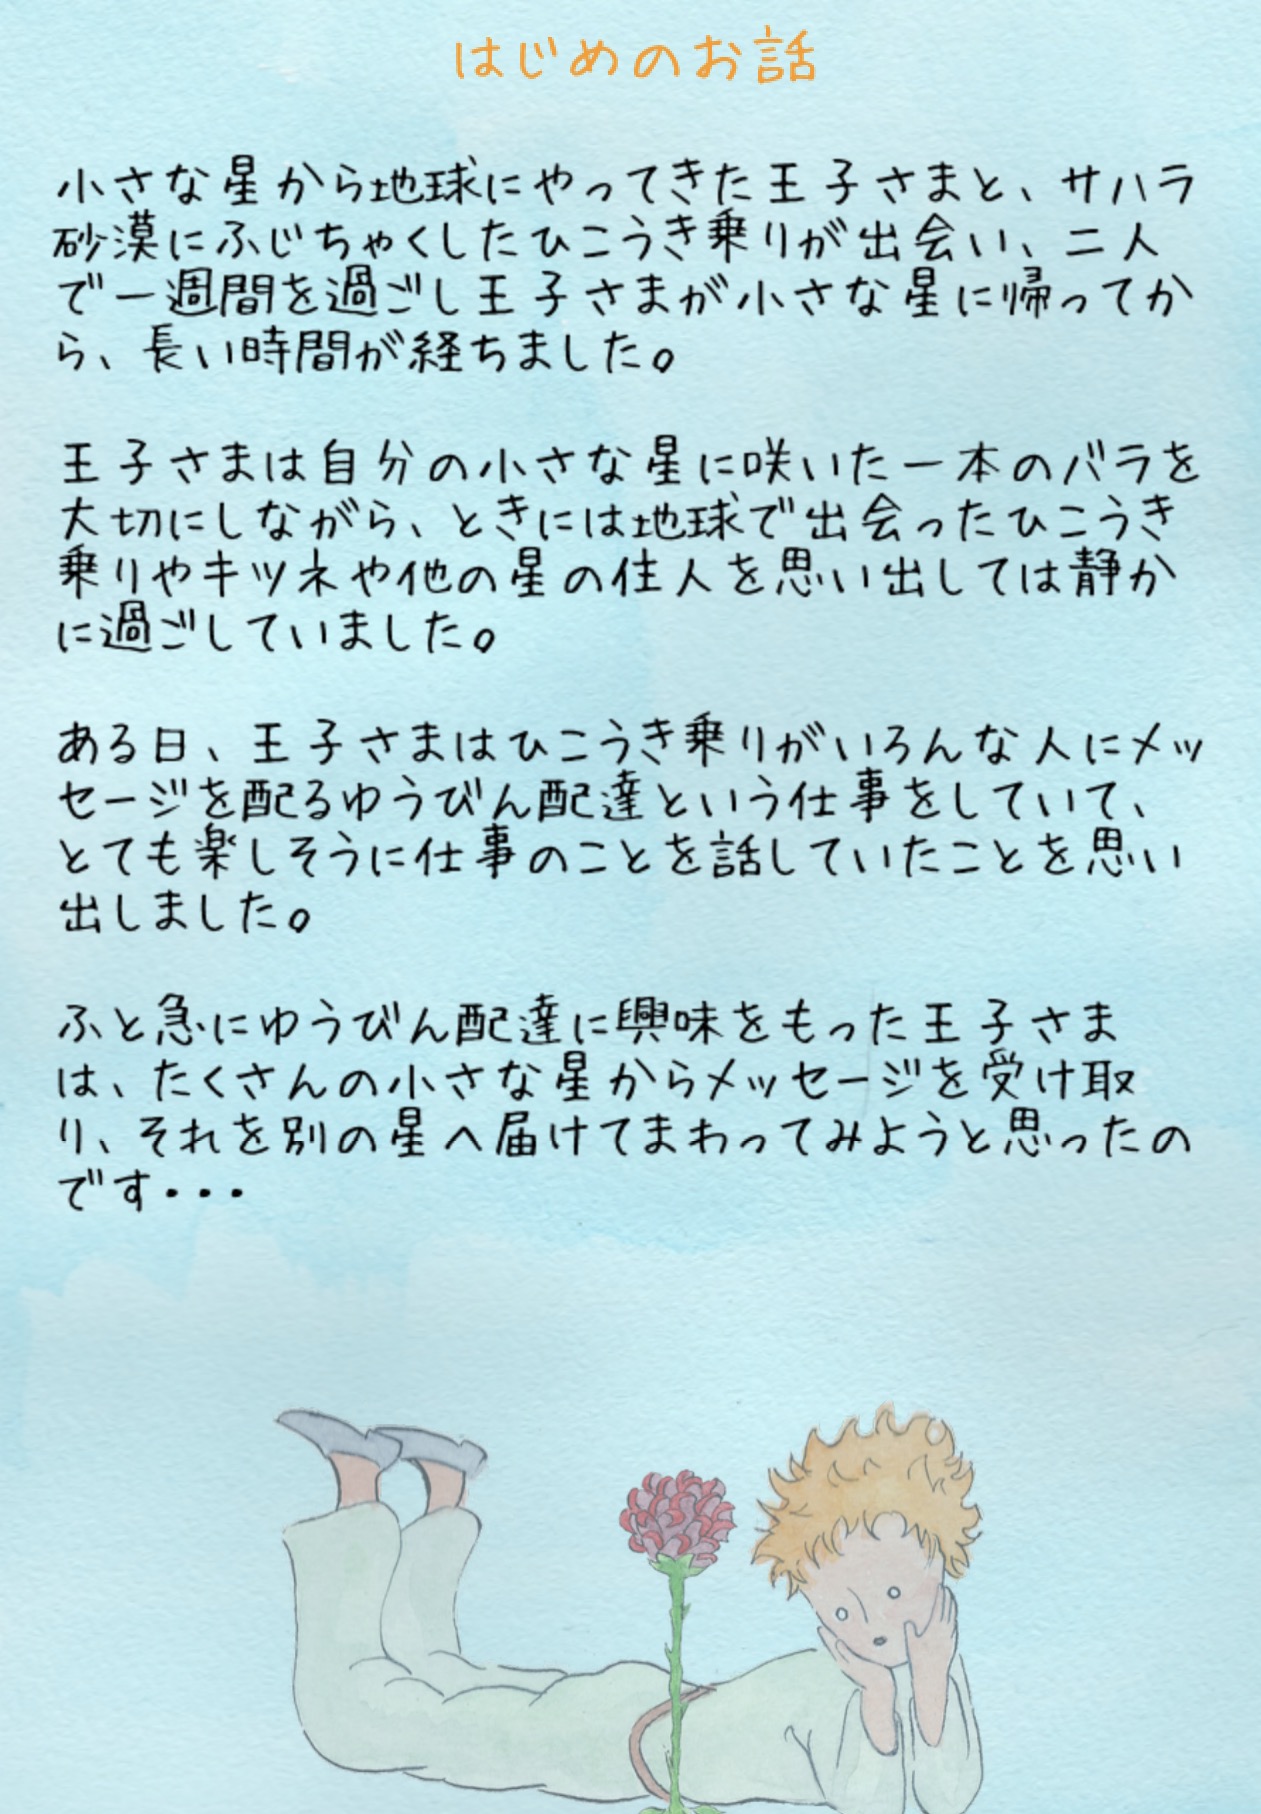 はじめのお話
小さな星から地球にやってきた王子さまと、サハラ
砂漠にふじちゃくしたひこうき乗りが出会い、二人
で一週間を過ごし王子さまが小さな星に帰ってか
ら、長い時間が経ちました。
王子さまは自分の小さな星に咲いた一本のバラを
大切にしながら、ときには地球で出会ったひこうき
乗りやキツネや他の星の住人を思い出しては静か
に過ごしていました。
ある日、王子さまはひこうき乗りがいろんな人にメッ
セージを配るゆうびん配達という仕事をしていて、
とても楽しそうに仕事のことを話していたことを思い
出しました。
ふと急にゆうびん配達に興味をもった王子さま
は、たくさんの小さな星からメッセージを受け取
り、それを別の星へ届けてまわってみようと思ったの
です・・・